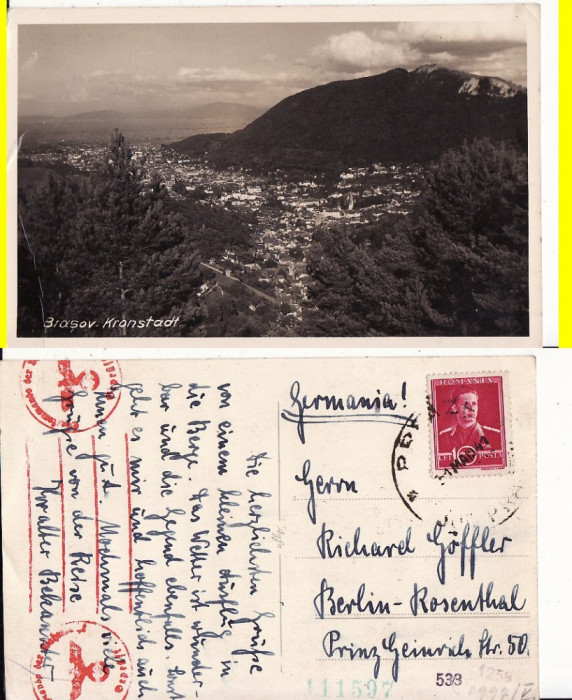 Brașov-Kronstadt
Die herzlichsten Grüße
von einem kleinen Ausflug in
die Berge. Das Wetter ist wunder-
bar und die Gegend ebenfalls.
geht es mir und hoffentlich auch
Ihnen gut. Nochmals viele
Grüße von der Reise
Ihr alter Bekannter
Germania!
ROMANIA
LEI 10 POSTA
Herrn
Richard Göffler
Berlin-Rosenthal
Prinz Heinrich Str. 50.
111597
538
1258
Geprüft